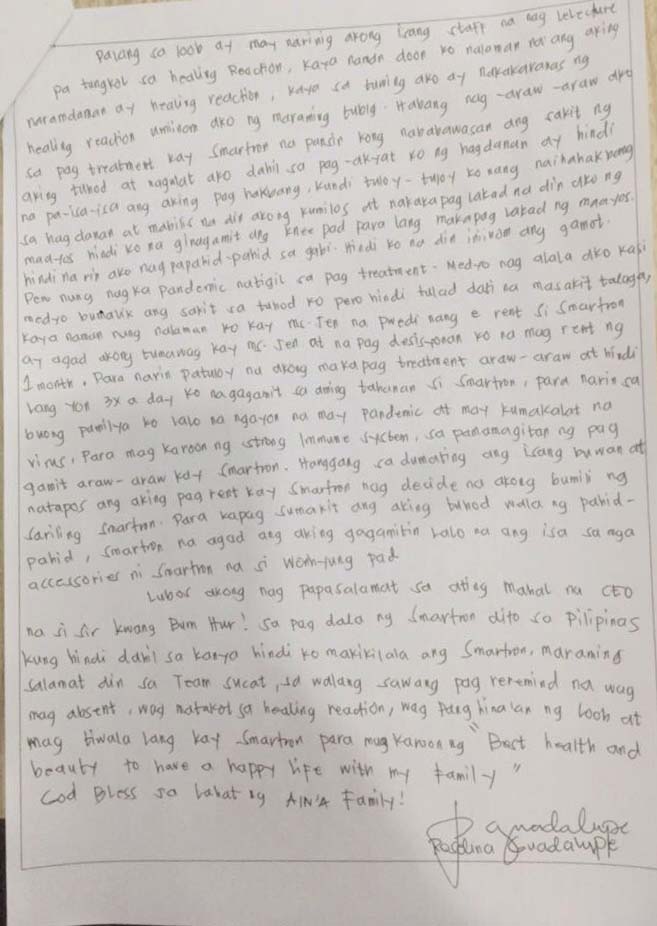 Palang sa loob ay may narinig akong isang staff na nag lelecture
pa tungkol sa healing Reaction, kaya naman doon ko nalaman na ang aking
naramdaman ay healing reaction, kaya sa tuwing ako ay nakakaranas ng
healing reaction umiinom ako ng maraming tubig. Habang nag-araw-araw ako
sa pag treatment kay Smartron na pansin kong nababawasan ang sakit ng
aking tuhod at nagulat ako dahil sa pag-akyat ko ng hagdanan ay hindi
na pa-isa-isa ang aking pag hakbang, kundi tuloy-tuloy ko nang naihahakbang
sa hagdanan at mabilis na din akong kumilos at nakakapag lakad na din ako ng
maayos hindi ko na ginagamit ang knee pad para lang makapag lakad ng maayos.
hindi na rin ako nag papahid-pahid sa gabi. Hindi ko na din iniinom ang gamot.
Pero nung nag ka pandemic natigil sa pag treatment. Medyo nag alala ako kasi
medyo bumalik ang sakit sa tuhod ko pero hindi tulad dati na masakit talaga,
kaya naman nung nalaman ko kay ms. Jen na pwedi nang e rent si Smartron
ay agad akong tumawag kay ms. Jen at na pag desisyonan ko na mag rent ng
1 month. Para narin patuloy na akong makapag treatment araw-araw at hindi
lang yon 3x a day ko nagagamit sa aming tahanan si Smartron, para narin sa
buong pamilya ko lalo na ngayon na may pandemic at may kumakalat na
virus, Para mag karoon ng strong Immune system, sa pamamagitan ng pag
gamit araw-araw kay Smartron. Hanggang sa dumating ang isang buwan at
natapos ang aking pag rent kay Smartron nag decide na akong bumili ng
sariling Smartron. Para kapag sumakit ang aking tuhod wala ng pahid-
pahid, Smartron na agad ang aking gagamitin lalo na ang isa sa mga
accessories ni Smartron na si Wonh-Jung pad
Lubos akong nag papasalamat sa ating mahal na CEO
na si Sir Kwang Bum Hur! sa pag dala ng Smartron dito sa Pilipinas
kung hindi dahil sa kanya hindi ko makikilala ang Smartron, maraming
salamat din sa Team Sucat, sa walang sawang pag reremind na wag
mag absent, wag matakot sa healing reaction, wag panghinalan ng loob at
mag tiwala lang kay Smartron para mag karoon ng "Best health and
beauty to have a happy life with my family"
God Bless sa lahat ng AIN'A Family!
Guadalupe
Guadalupe